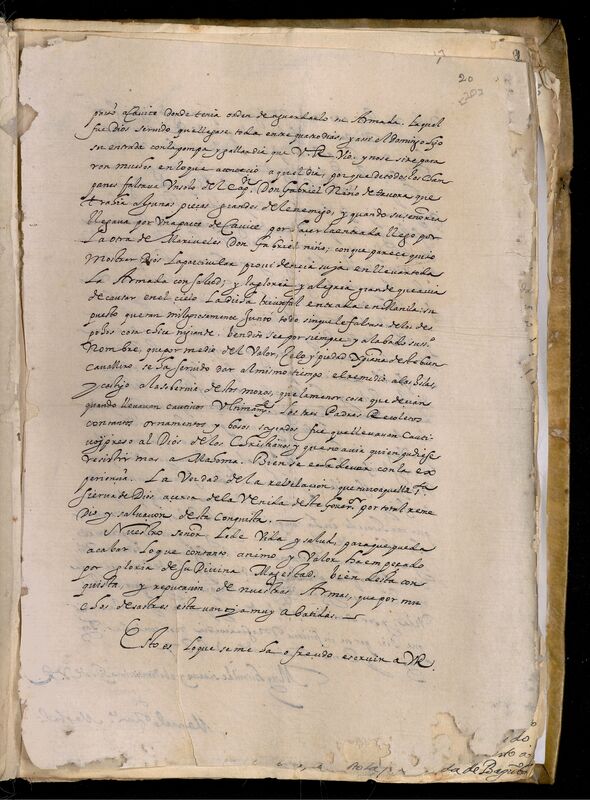 20
a Cavite donde tenia orden de aguardarlo su Armada. La qual
fue Dios servido que llegase toda entre quatro dias, y assi el Domingo hizo
su entrada con la pompa y gallardia que V. R. vio. y no se si repara
ron muchos en lo que acontecio aquel dia, por que de todos los Cham
panes faltava Uno solo del Capn. Don Gabriel Niño de tavora que
trahia algunas pieças grandes del enemigo, y quando su señoria
llegava por Una parte de Cavite por hacer la entrada llego por
La otra de Mariveles Don Gabriel niño; con que parece quiso
mostrar Dios La particular providencia suya en llevar toda
La Armada con salud; y la gloria y alegria grande que avia
de causar en el cielo La dicha triunfal entrada en Manila: su
puesto que tan milagrosamente Junto todo sin que le faltase de los des
pojos cosa chica ni grande. bendito sea por siempre y alabado su sto.
Nombre, que por medio del Valor, Zelo y piedad Xpiana deste buen
Cavallero, se ha servido dar al mismo tiempo el remedio a las Islas,
y castigo a la soberbia de estos moros, que la menor cosa que decian
quando llevavan cautivos Ultimamte. Los tres Padres Recoletos
con tantos ornamentos y Vasos sagrados fue que llevavan Cauti
vo y preso al Dios de los Christianos y que no avia quien pudiese
resistir mas a Mahoma. Bien se echa de ver con la ex
periencia. La Verdad de la revelacion, que tuvo aquella
sierva de Dios acerca de la Venida deste Governor. por total reme
dio y salvacion desta Conquista.
Nuestro señor Le de Vida y salud, para que pueda
acabar Lo que con tanto animo y Valor ha empeçado
por gloria de su Divina Magestad. bien desta con
quista, y reputacion de nuestras Armas, que por mu
chos desastres estavan ya muy abatidas.
Esto es Lo que se me ha ofrecido escrivir a VR